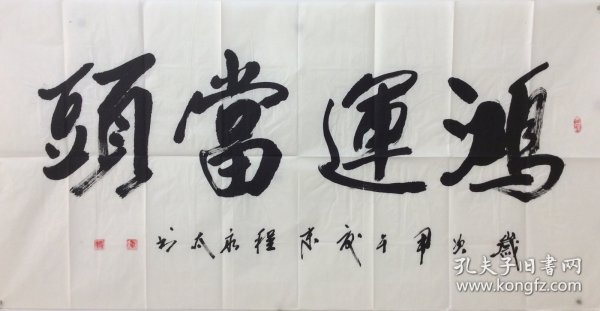 鴻運當頭
歲次甲午
程永太书
孔夫子旧书网
www.kongfz.com